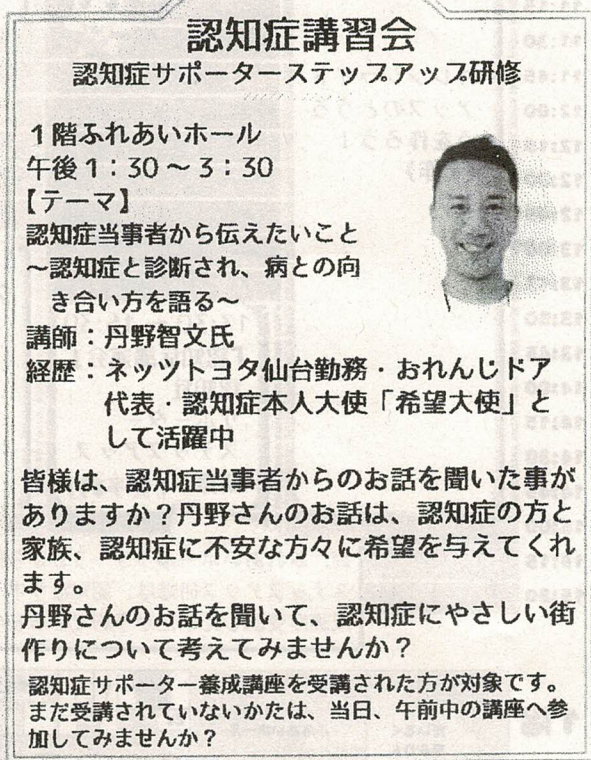 認知症講習会
認知症サポーターステップアップ研修
1階ふれあいホール
午後1：30～3：30
【テーマ】
認知症当事者から伝えたいこと
～認知症と診断され、病との向
き合い方を語る～
講師：丹野智文氏
経歴：ネッツトヨタ仙台勤務・おれんじドア
代表・認知症本人大使「希望大使」と
して活躍中
皆様は、認知症当事者からのお話を聞いた事が
ありますか？丹野さんのお話は、認知症の方と
家族、認知症に不安な方々に希望を与えてくれ
ます。
丹野さんのお話を聞いて、認知症にやさしい街
作りについて考えてみませんか？
認知症サポーター養成講座を受講された方が対象です。
まだ受講されていないかたは、当日、午前中の講座へ参
加してみませんか？